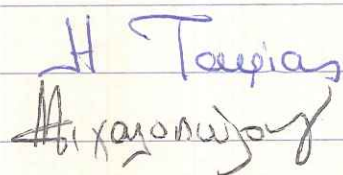 Η Ταμίας
Μιχαλοπούλου